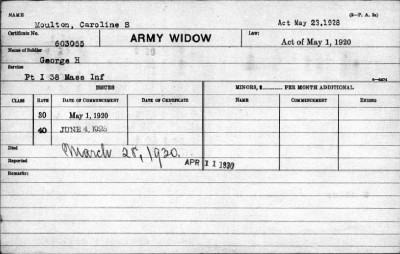 NAME (3—P. A. 2a)
Moulton, Caroline S Act May 23,1928
Certificate No. ARMY WIDOW Law:
603055 Act of May 1, 1920
Name of Soldier
George H
Service
Pt I 38 Mass Inf
ISSUES MINORS, $ PER MONTH ADDITIONAL
CLASS RATE DATE OF COMMENCEMENT DATE OF CERTIFICATE NAME COMMENCEMENT ENDING
30 May 1, 1920
40 JUNE 4, 1928
Died
March 28, 1930.
Reported APR 11 1930
Remarks: